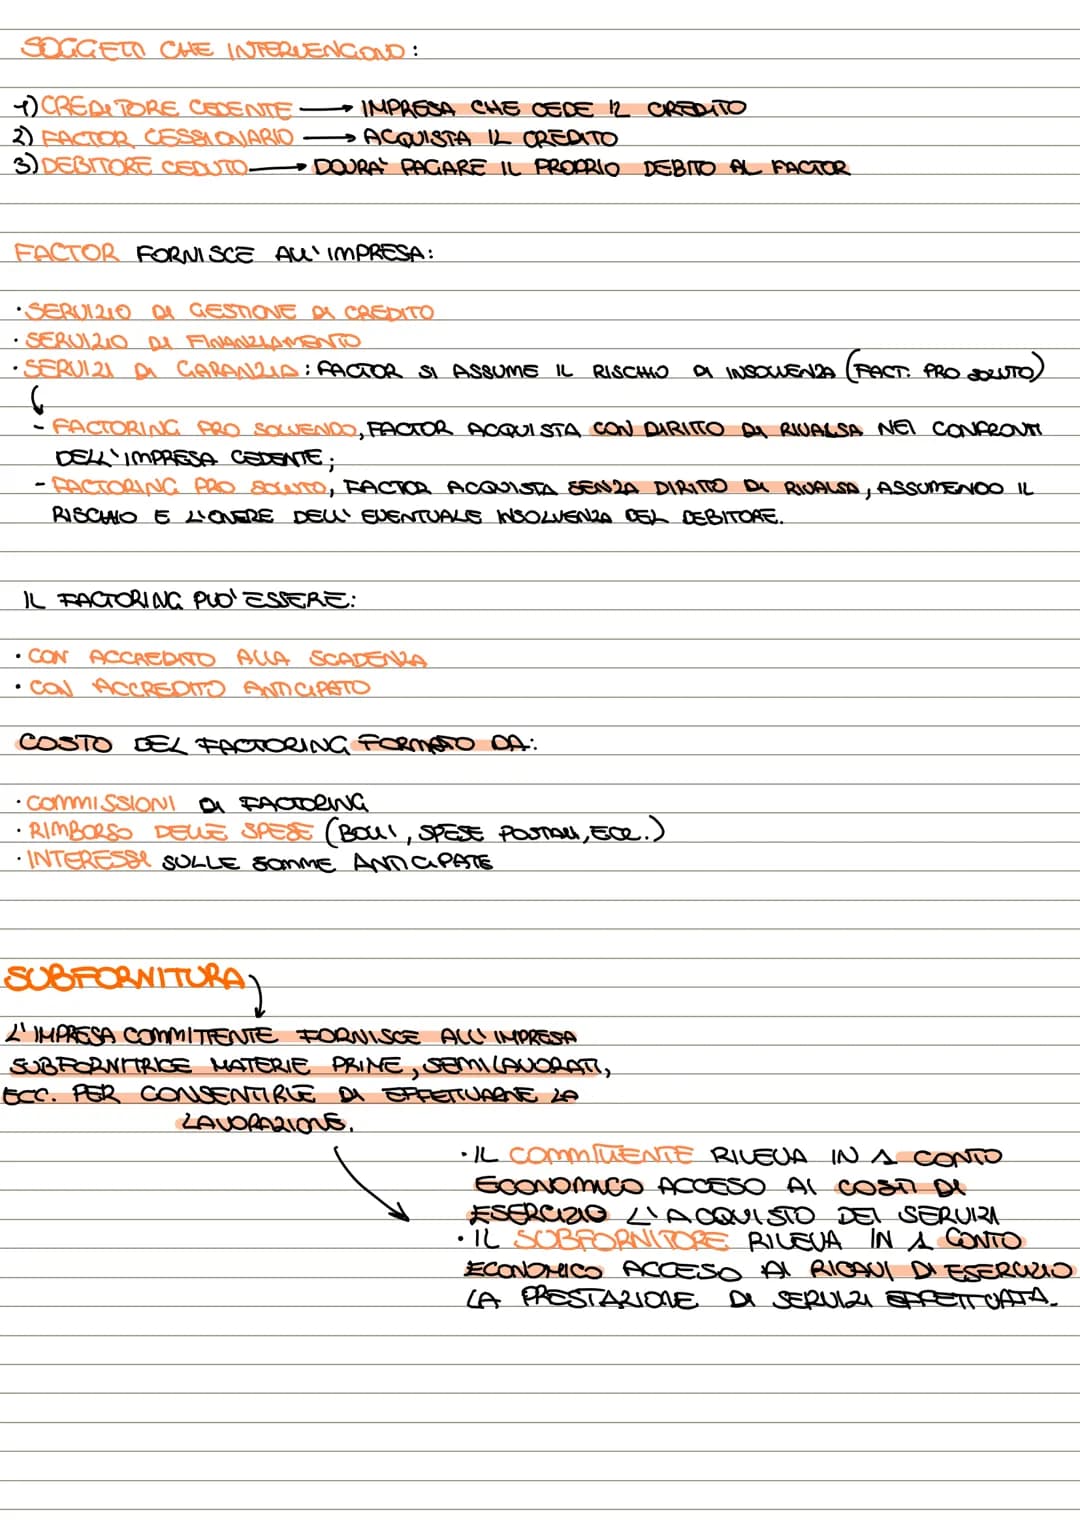 SOGGETTI CHE INTERVENGONO:
1) CREDITORE CEDENTE → IMPRESA CHE CEDE IL CREDITO
2) FACTOR CESSIONARIO → ACQUISTA IL CREDITO
3) DEBITORE CEDUTO → DOVRA' PAGARE IL PROPRIO DEBITO AL FACTOR
FACTOR FORNISCE ALL'IMPRESA:
• SERVIZIO DI GESTIONE DI CREDITO
• SERVIZIO DI FINANZIAMENTO
• SERVIZI DI GARANZIA: FACTOR SI ASSUME IL RISCHIO DI INSOLVENZA (FACT. PRO SOLUTO)
- FACTORING PRO SOLVENDO, FACTOR ACQUISTA CON DIRITTO DI RIVALSA NEI CONFRONTI
DELL'IMPRESA CEDENTE;
- FACTORING PRO SOLUTO, FACTOR ACQUISTA SENZA DIRITTO DI RIVALSA, ASSUMENDO IL
RISCHIO E L'ONERE DELL' EVENTUALE INSOLVENZA DEL DEBITORE.
IL FACTORING PUO' ESSERE:
• CON ACCREDITO ALLA SCADENZA
• CON ACCREDITO ANTICIPATO
COSTO DEL FACTORING FORMATO DA:
• COMMISSIONI DI FACTORING
• RIMBORSO DELLE SPESE (BOLLI, SPESE POSTALI, ECC.)
• INTERESSI SULLE SOMME ANTICIPATE
SUBFORNITURA
L'IMPRESA COMMITTENTE FORNISCE ALL'IMPRESA
SUBFORNITRICE MATERIE PRIME, SEMILAVORATI,
ECC. PER CONSENTIRLE DI EFFETTUARNE LA
LAVORAZIONE.
• IL COMMITTENTE RILEVA IN 1 CONTO
ECONOMICO ACCESO AI COSTI DI
ESERCIZIO L'ACQUISTO DEI SERVIZI
• IL SUBFORNITORE RILEVA IN 1 CONTO
ECONOMICO ACCESO AI RICAVI DI ESERCIZIO
LA PRESTAZIONE DI SERVIZI EFFETTUATA.